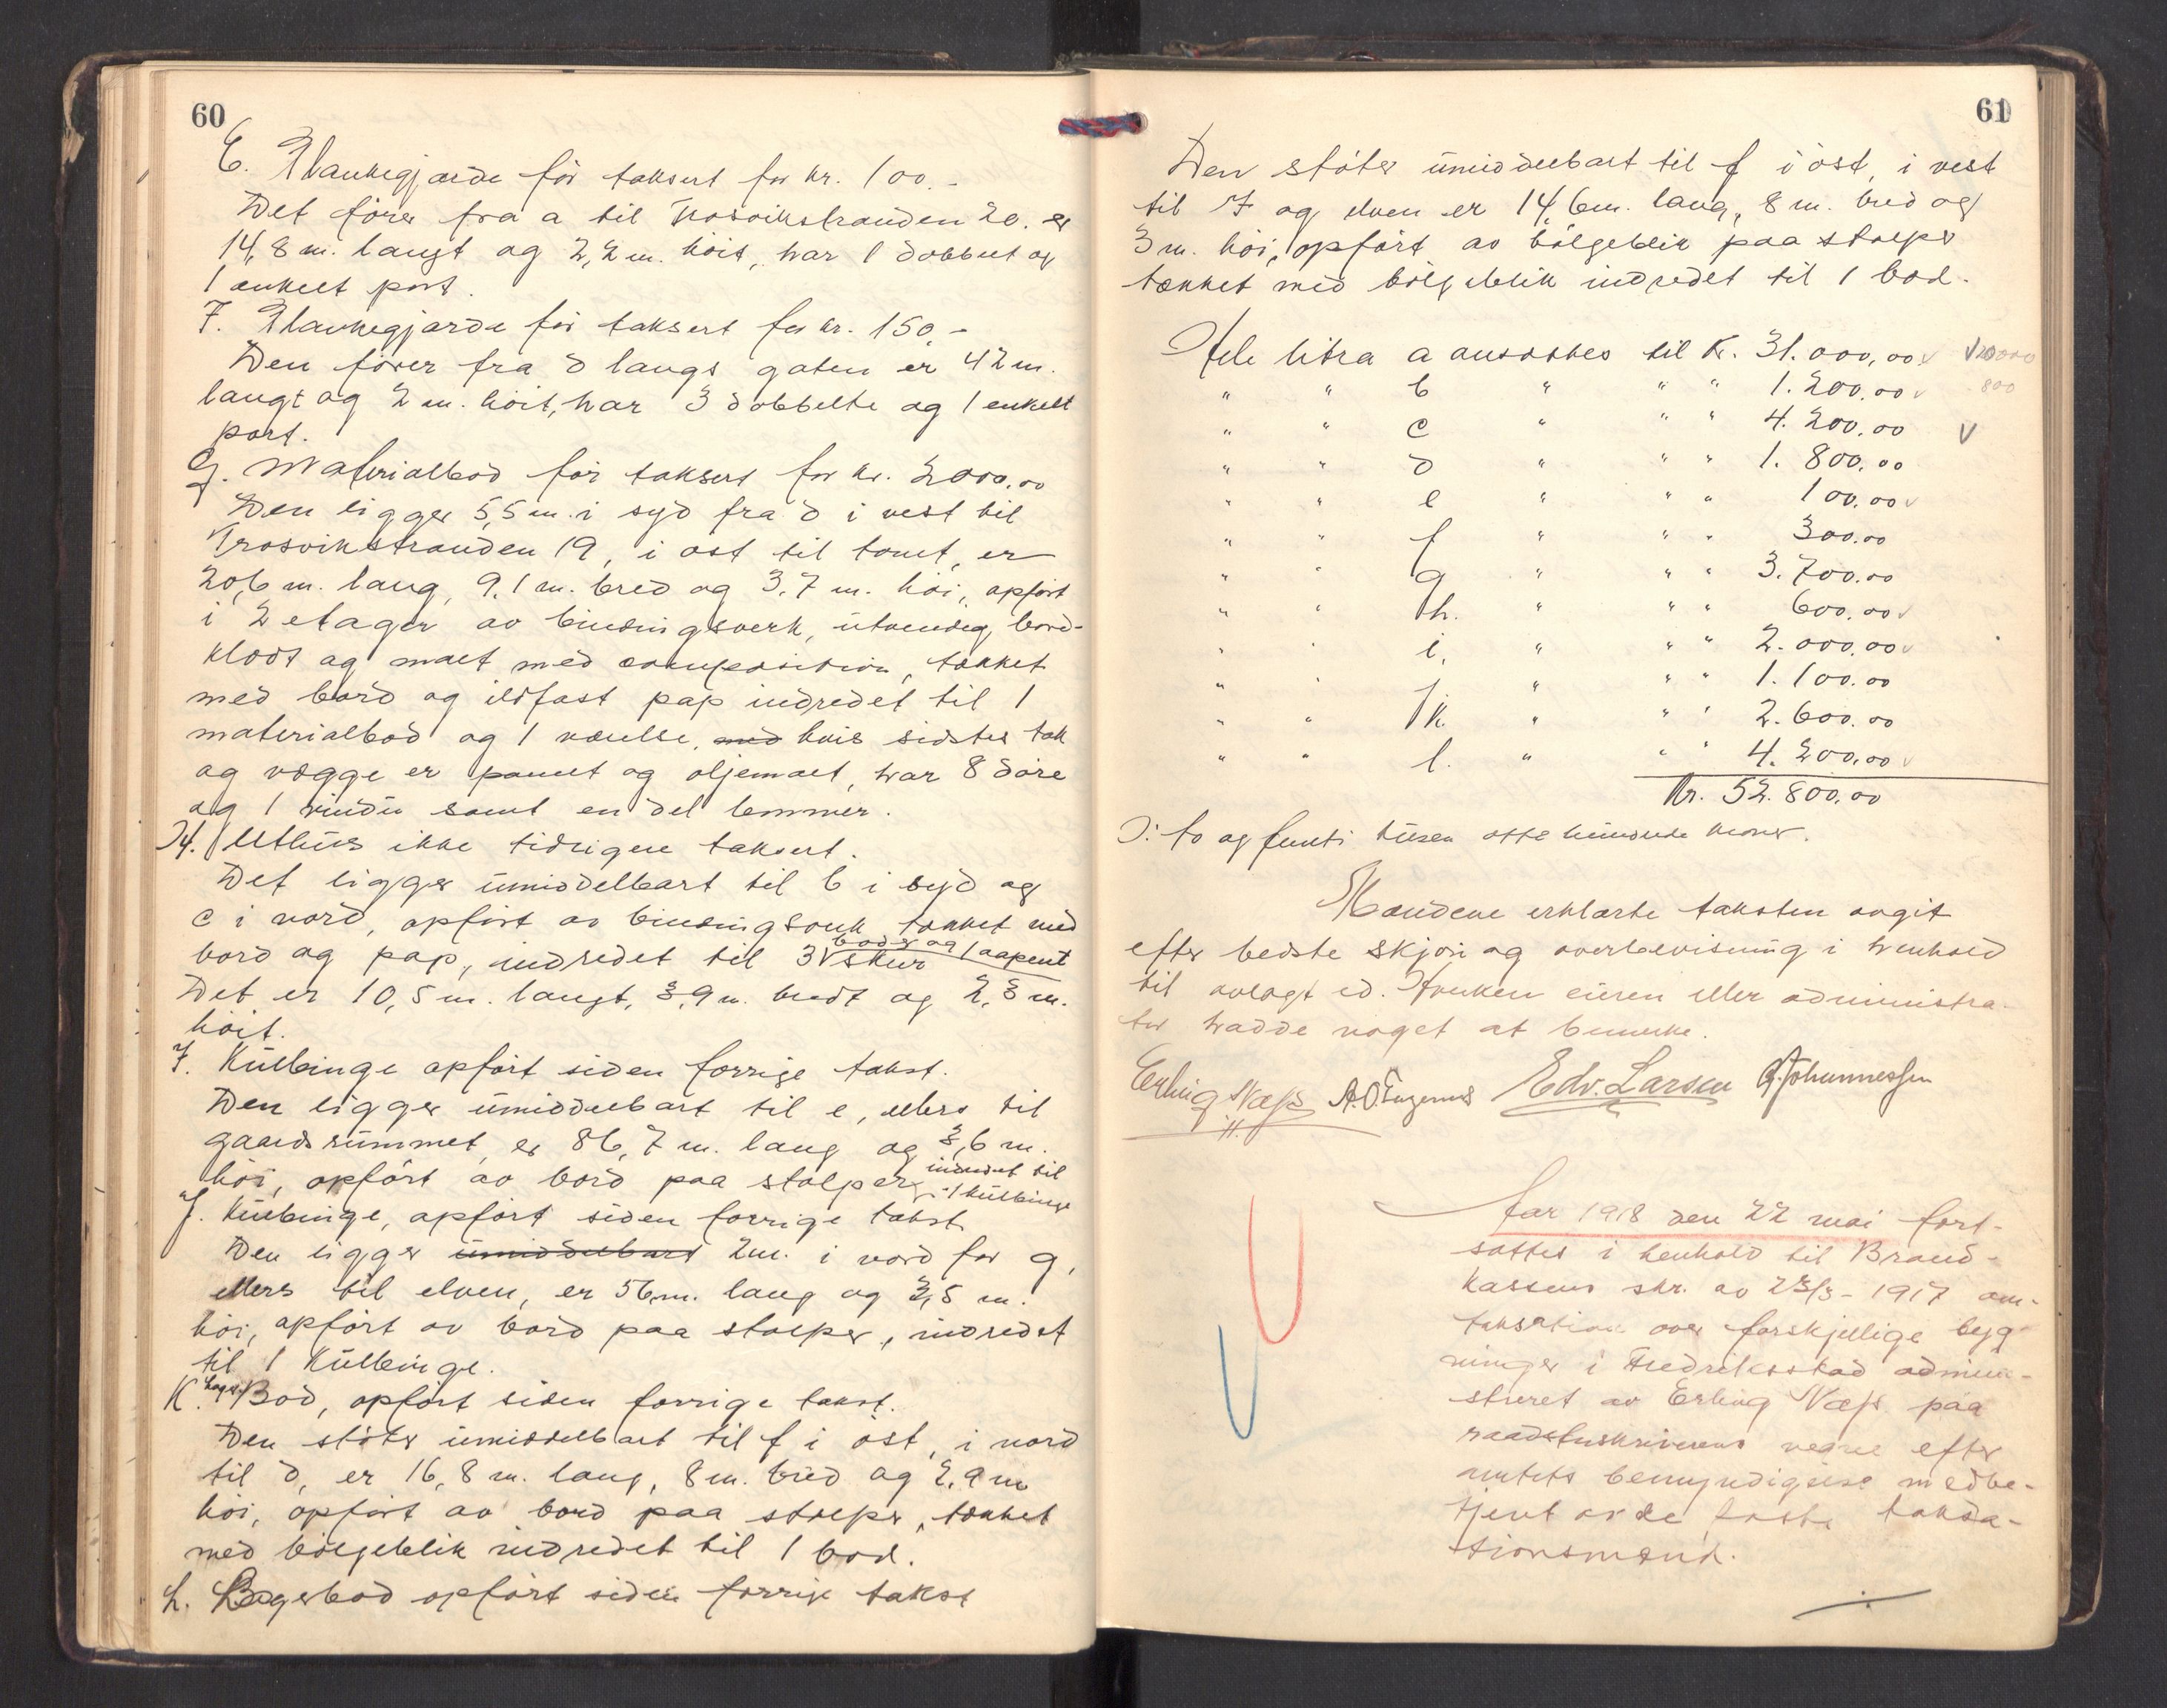 60
E. Plankegjærde før taksert for kr. 100.-
Det fører fra a til Trosvikstranden 20. er
14,8 m. langt og 2,2 m. höit, har 1 dobbelt og
1 enkelt port.
F. Plankegjærde før taksert for kr. 150.-
Den fører fra d langs gaten er 42 m.
langt og 2 m. höit, har 3 dobbelte og 1 enkelt
port.
G. Materialbod før taksert for kr. 2000.00
Den ligger 5,5 m. i syd fra d i vest til
Trosvikstranden 19, i øst til tomt, er
20,6 m. lang, 9,1 m. bred og 3,7 m. høi, opført
i 2 etager av bindingsverk, utvendig bord-
klædt og malt med composition, tækket
med bord og ildfast pap indredet til 1
materialbod og 1 værelse, med hvis sidstes tak
og vægge er panelt og oljemalt, har 8 döre
og 1 vindu samt en del lemmer.
H. Uthus ikke tidligere taksert.
Det ligger umiddelbart til b i syd og
c i nord, opført av bindingsverk tækket med
bord og pap, indredet til 3 boder og 1 aapent
skur
Det er 10,5 m. langt, 3,9 m. bredt og 2,8 m.
höit.
I. Kulbinge opført siden forrige takst.
Den ligger umiddelbart til e, ellers til
gaardsrummet, er 86,7 m. lang og 3,6 m.
höi, opført av bord paa stolper, indredet til
1 kulbinge
J. Kulbinge, opført siden forrige takst
Den ligger umiddelbart 2 m. i nord for g,
ellers til elven, er 56 m. lang og 3,5 m.
höi, opført av bord paa stolper, indredet
til 1 Kulbinge.
K. Lager Bod, opført siden forrige takst.
Den støter umiddelbart til f i øst, i nord
til d, er 16,8 m. lang, 8 m. bred og 2,9 m
høi, opført av bord paa stolper, tækket
med bølgeblik indredet til 1 bod.
L. Lagerbod opført siden forrige takst
61
Den støter umiddelbart til f i øst, i vest
til I og elven er 14,6 m. lang, 8 m. bred og
3 m. høi, opført av bølgeblik paa stolper
tækket med bølgeblik indredet til 1 bod.
Hele litra a ansættes til K. 31.000,00 v
" " b " " " 1.200.00 v 800
" " c " " " 4.200.00 v
" " d " " " 1.800.00
" " e " " " 100.00 v
" " f " " " 300.00
" " g " " " 3.700.00
" " h. " " " 600.00 v
" " i. " " " 2.000.00 v
" " j. " " " 1.100.00
" " k. " " " 2.600.00
" " l. " " " 4.200.00 v
Kr. 52.800.00
D: to og femti tusen otte hundrede kroner.
Mændene erklærte taksten avgit
efter bedste skjøn og overbevisning i henhold
til avlagt ed. Hverken eieren eller administra-
tor hadde noget at bemerke.
Erling Næss Edv. Larsen G. Johannessen
Aar 1918 den 22 mai fort-
sattes i henhold til Brand-
kassens skr. av 23/3 - 1917 om-
taksation over forskjellige byg-
ninger i Fredriksstad admini-
streret av Erling Næss paa
raadstuskriverens vegne efter
amtets bemyndigelse medbe-
tjent av de faste taksa-
tionsmænd.